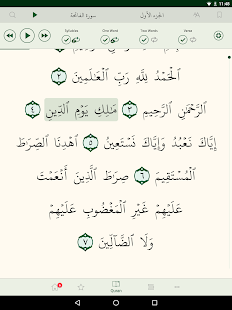 11:48
سورة الفاتحة الجزء الأول
Syllables One Word Two Words Verse
ٱلْحَمْدُ لِلَّهِ رَبِّ ٱلْعَـٰلَمِينَ ٢
ٱلرَّحْمَـٰنِ ٱلرَّحِيمِ ٣ مَـٰلِكِ يَوْمِ ٱلدِّينِ ٤
إِيَّاكَ نَعْبُدُ وَإِيَّاكَ نَسْتَعِينُ ٥ ٱهْدِنَا ٱلصِّرَٰطَ
ٱلْمُسْتَقِيمَ ٦ صِرَٰطَ ٱلَّذِينَ أَنْعَمْتَ
عَلَيْهِمْ غَيْرِ ٱلْمَغْضُوبِ عَلَيْهِمْ
وَلَا ٱلضَّآلِّينَ ٧
Quran